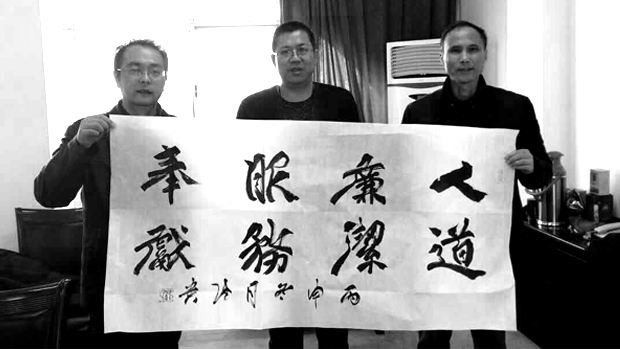 人道
廉潔
服務
奉獻
丙申冬月